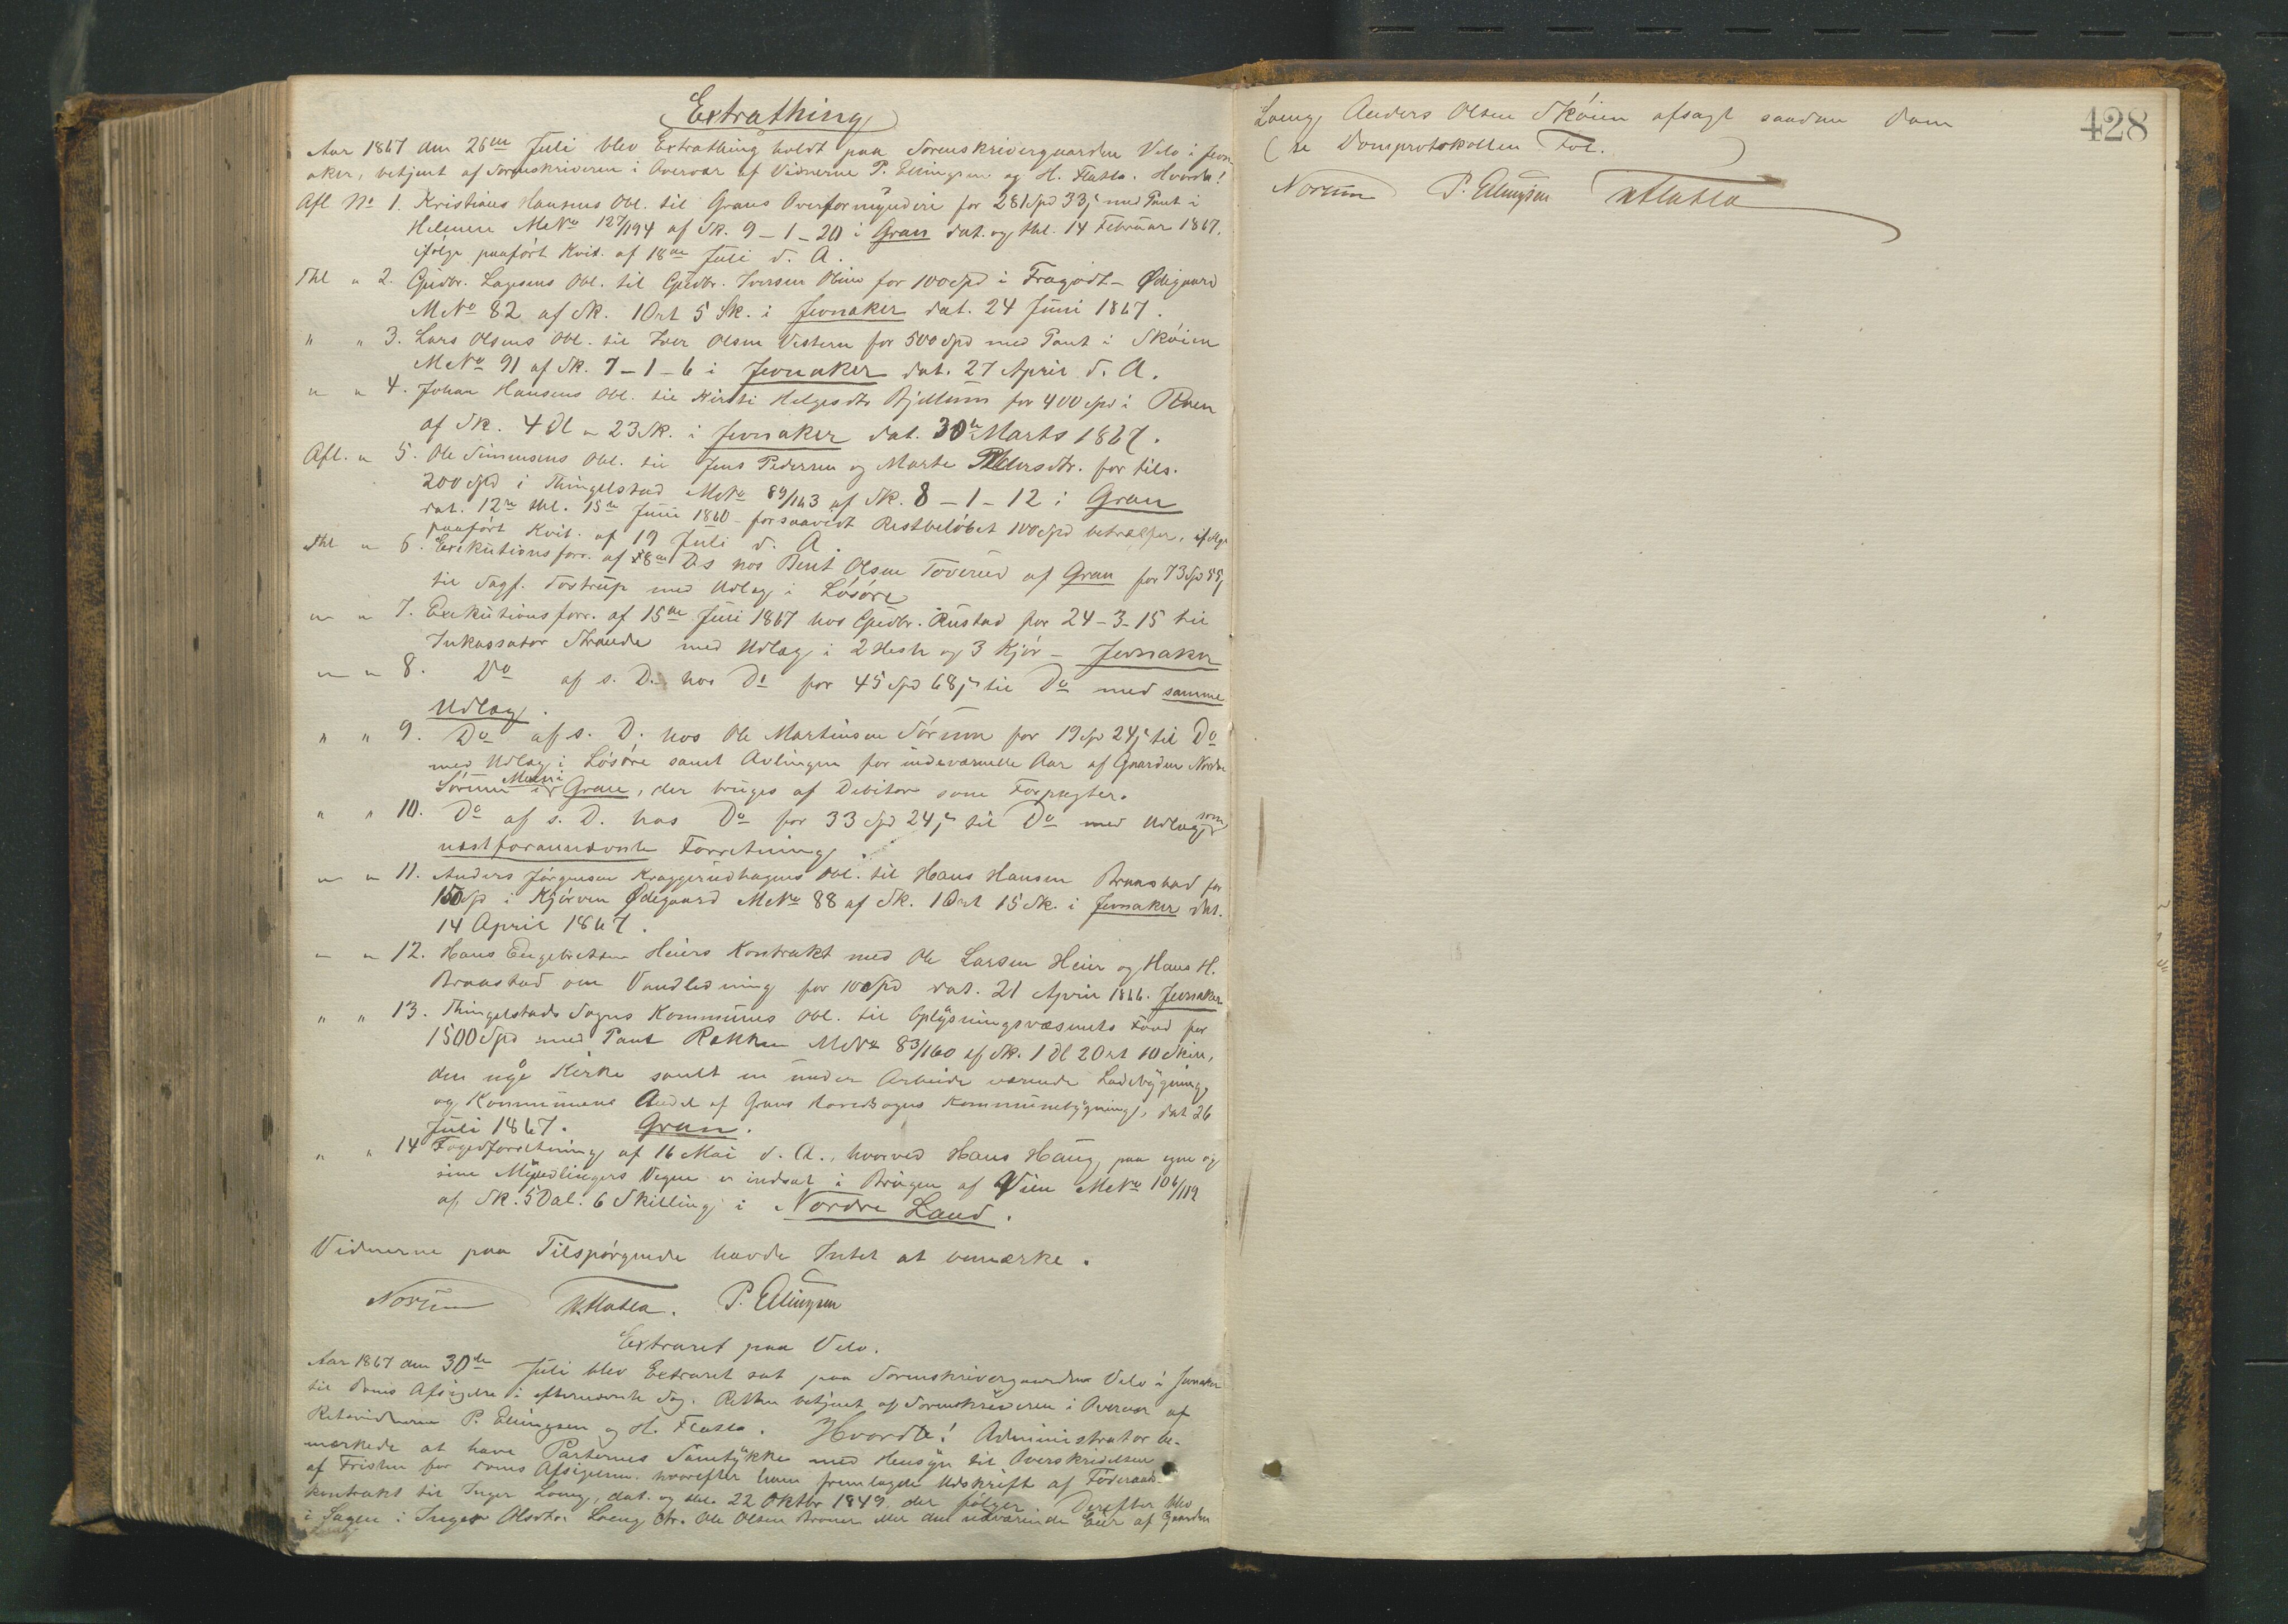 Extrathing
Aar 1867 den 26de Juli blev Extrathing holdt paa Sorenskrivergaarden Velo i Jevn
aker, betjent af Sorenskriveren i Overvær af Vidnerne P. Ellingsen og H. Flatla. Hvorda!
Afl. No 1. Kristians Hansens Obl. til Grans Overformynderi for 281 Spd 33 s med Pant i
Helmere MNo 127/194 af Sk. 9-1-20 i Gran dat. og thl. 14 Februar 1867,
ifølge paaført Kvit. af 18de Juli d. A.
Thl " 2. Gudbr. Lagesens Obl. til Gudbr. Iversen for 100 Spd i Fragodt-Ødegaard
MNo 82 af Sk. 1 Ort 5 Sk. i Jevnaker dat. 24 Juni 1867.
" " 3. Lars Olsens Obl. til Iver Olsen Vestern for 500 Spd med Pant i Skøien
MNo 91 af Sk. 7-1-6 i Jevnaker dat. 27 April d. A.
" " 4. Johan Hansens Obl. til Kirsti Helgesdtr Bjellum for 400 Spd i Roen
af Sk. 4 Dl " 23 Sk. i Jevnaker dat. 30te Marts 1867.
Afl. " 5. Ole Simensens Obl. til Jens Pedersen og Marte Pedersdtr. for tils.
200 Spd i Thingelstad MNo 89/163 af Sk. 8-1-12 i Gran
dat. 12te thl. 15de Juni 1860 - forsaavidt Restbeløbet 100 Spd betræffer, ifølge
paaført Kvit. af 19 Juli d. A.
Thl " 6. Exekutionsforr. af 18de Ds hos Bent Olsen Toverud af Gran for 73 Spd 55 s
til Sagf. Tostrup med Udlæg i Løsøre
" " 7. Exekutionsforr. af 15de Juni 1867 hos Gudbr. Rustad for 24-3-15 til
Inkassator Strande med Udlæg i 2 Heste og 3 Kjør - Jevnaker
" " 8. Do af s. D. hos Do for 45 Spd 68 s til Do med samme
Udlæg.
" " 9. Do af s. D. hos Ole Martinsen Sørum for 19 Spd 24 s til Do
med Udlæg i Løsøre samt Avlingen for indeværende Aar af Gaarden Nordre
Sørum i Gran, der bruges af Debitor som Forpagter.
" " 10. Do af s. D. hos Do for 33 Spd 24 s til Do med Udlæg som
næstforannævnte Forretning.
" " 11. Anders Jørgensen Kraggerudhagens Obl. til Hans Hansen Braastad for
150 Spd i Kjørven Ødegaard MNo 88 af Sk. 1 Ort 15 Sk. i Jevnaker dat.
14 April 1867.
" " 12. Hans Engebretsen Heiers Kontrakt med Ole Larsen Heier og Hans H.
Braastad om Vandledning for 10 Spd dat. 21 April 1866. Jevnaker
" " 13. Thingelstads Sogns Kommunes Obl. til Oplysningsvæsenets Fond for
1500 Spd med Pant Rekken MNo 83/160 af Sk. 1 Dl 2 Ort 10 Skill,
den nye Kirke samt en under Arbeide værende Ladebygning
og Kommunens Andel af Grans Hovedsogns Kommunebygning, dat 26
Juli 1867. Gran.
" " 14 Fogedforretning af 16 Mai d. A., hvorved Hans Haug, paa egne og
sine Myndlingers Vegne er indsat i Brugen af Vien MNo 106/112
af Sk. 5 Dal. 6 Skilling i Nordre Land.
Vidnerne paa Tilspørgende havde Intet at bemærke.
Norum H. Flatla. P. Ellingsen
Extraret paa Velo.
Aar 1867 den 30de Juli blev Extraret sat paa Sorenskrivergaarden Velo i Jevnaker
til Doms Afsigelse i efternævnte Sag. Retten betjent af Sorenskriveren i Overvær af
Retsvidnerne P. Ellingsen og H. Flatla. Hvorda! Administrator be-
mærkede at have Parternes Samtykke med Hensyn til Overskridelsen
af Fristen for Doms Afsigelse, hvorefter han fremlagde Udskrift af Føderaads-
kontrakt til Inger Loeng, dat. og thl. 22 Oktbr 1849, der følger. Derefter blev
i Sagen: Inger Olsdtr Loeng ctr. Ole Olsen eller den nuværende Eier af Gaarden
428
Loeng Anders Olsen Skøien afsagt saadan Dom
(se Domprotokollen Fol. )
Norum P. Ellingsen H Flatla